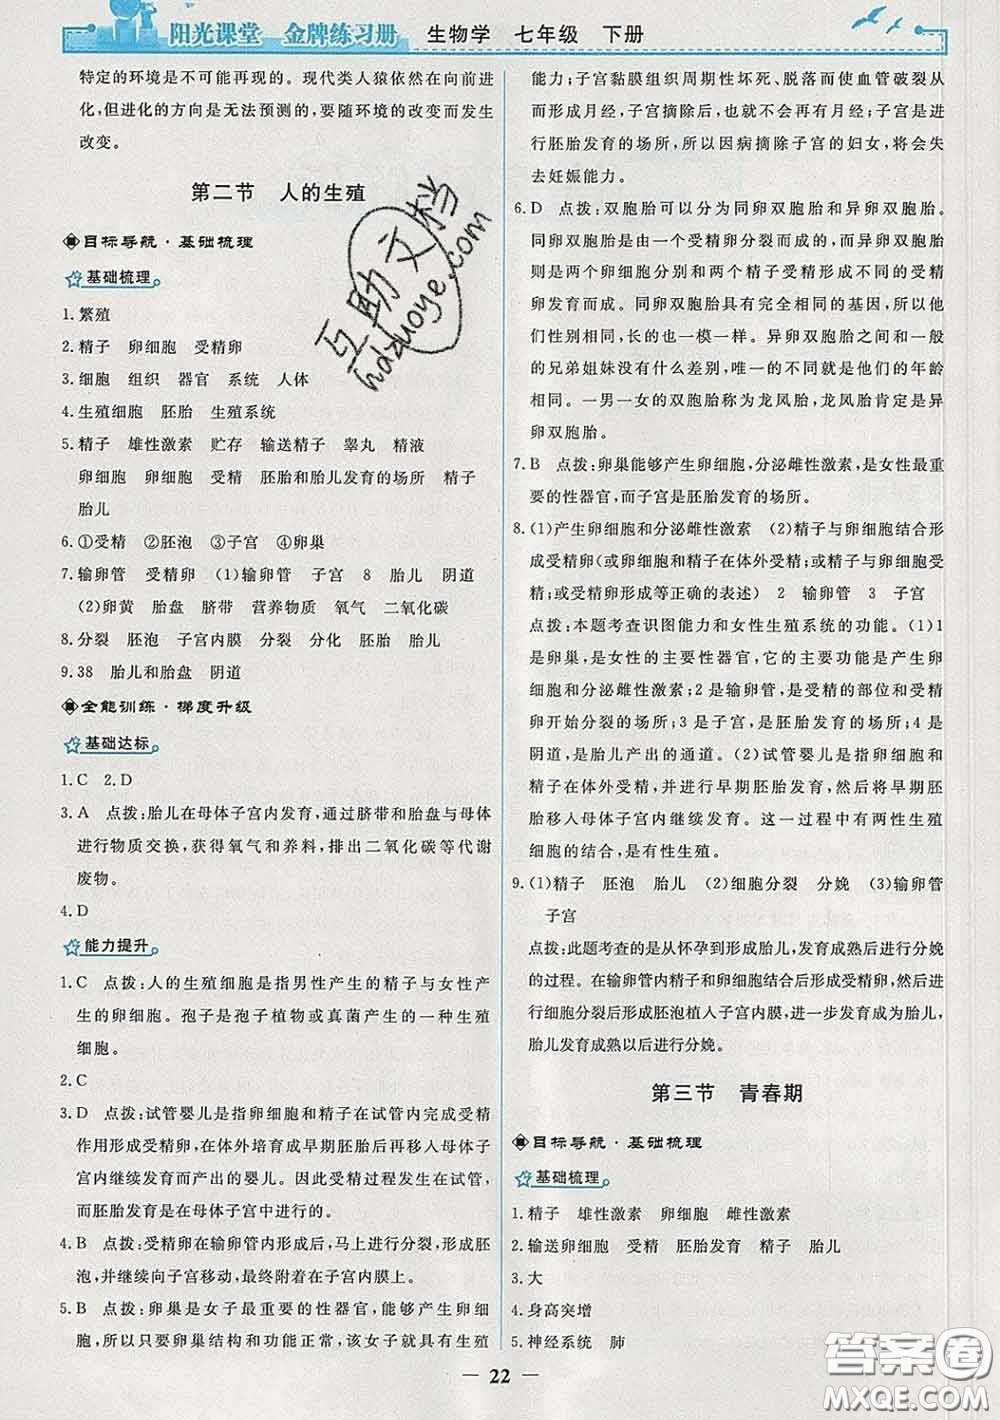 阳光课堂 金牌练习册 生物学 七年级 下册
特定的环境是不可能再现的。现代类人猿依然在向前进
化,但进化的方向是无法预测的,要随环境的改变而发生
改变。
第二节 人的生殖
目标导航·基础梳理
基础梳理
1.繁殖
2.精子 卵细胞 受精卵
3.细胞 组织 器官 系统 人体
4.生殖细胞 胚胎 生殖系统
5.精子 雄性激素 贮存 输送精子 睾丸 精液
卵细胞 卵细胞 受精 胚胎和胎儿发育的场所 精子
胎儿
6.①受精 ②胚泡 ③子宫 ④卵巢
7.输卵管 受精卵 (1)输卵管 子宫 8 胎儿 阴道
(2)卵黄 胎盘 脐带 营养物质 氧气 二氧化碳
8.分裂 胚泡 子宫内膜 分裂 分化 胚胎 胎儿
9.38 胎儿和胎盘 阴道
全能训练·梯度升级
基础达标
1.C 2.D
3.A 点拨:胎儿在母体子宫内发育,通过脐带和胎盘与母体
进行物质交换,获得氧气和养料,排出二氧化碳等代谢
废物。
4.D
能力提升
1.C 点拨:人的生殖细胞是指男性产生的精子与女性产
生的卵细胞。孢子是孢子植物或真菌产生的一种生殖
细胞。
2.C
3.D 点拨:试管婴儿是指卵细胞和精子在试管内完成受精
作用形成受精卵,在体外培育成早期胚胎后再移入母体子
宫内继续发育而成的婴儿。因此受精过程发生在试管,
而胚胎发育是在母体子宫中进行的。
4.B 点拨:受精卵在输卵管内形成后,马上进行分裂,形成胚
泡,并继续向子宫移动,最终附着在子宫内膜上。
5.B 点拨:卵巢是女子最重要的性器官,能够产生卵细
胞,所以只要卵巢结构和功能正常,该女子就具有生殖
能力;子宫黏膜组织周期性坏死、脱落而使血管破裂从
而形成月经,子宫摘除后,也就不会再有月经;子宫是
进行胚胎发育的场所,所以因病摘除子宫的妇女,将会失
去妊娠能力。
6.D 点拨:双胞胎可以分为同卵双胞胎和异卵双胞胎。
同卵双胞胎是由一个受精卵分裂而成的,而异卵双胞胎
则是两个卵细胞分别和两个精子受精形成不同的受精
卵发育而成。同卵双胞胎具有完全相同的基因,所以他
们性别相同,长的也一模一样。异卵双胞胎和一般
的兄弟姐妹没有什么差别,唯一的不同就是他们的年龄
相同。一男一女的双胞胎称为龙凤胎,龙凤胎肯定是异
卵双胞胎。
7.B 点拨:卵巢能够产生卵细胞,分泌雌性激素,是女性最重
要的性器官,而子宫是胚胎发育的场所。
8.(1)产生卵细胞和分泌雌性激素 (2)精子与卵细胞结合形
成受精卵(或卵细胞和精子在体外受精;或精子与卵细胞
受精;或受精卵形成等正确的表述) 2 输卵管 3 子宫
点拨:本题考查识图能力和女性生殖系统的功能。(1)1
是卵巢,是女性的主要性器官,它的主要功能是产生卵
细胞和分泌雌性激素;2是输卵管,是受精的部位和受精
卵开始分裂的场所;3是子宫,是胚胎发育的场所;4是
阴道,是胎儿产出的通道。(2)试管婴儿是指卵细胞和
精子在体外受精,并进行早期胚胎发育,然后将早期胚
胎移入母体子宫内继续发育。这一过程中有两性生殖
细胞的结合,是有性生殖。
9.(1)精子 胚泡 胎儿 (2)细胞分裂 分娩 (3)输卵管
子宫
点拨:此题考查的是从怀孕到形成胎儿,发育成熟后进行分娩
的过程。在输卵管内精子和卵细胞结合后形成受精卵,然后进
行细胞分裂形成胚泡植入子宫内膜,进一步发育成为胎儿,
胎儿发育成熟以后进行分娩。
第三节 青春期
目标导航·基础梳理
基础梳理
1.精子 雄性激素 卵细胞 雌性激素
2.输送卵细胞 受精 胚胎发育 精子 胎儿
3.大
4.身高突增
5.神经系统 肺
22
互助文档
hdzuoye.com
答案圈
MXQE.COM